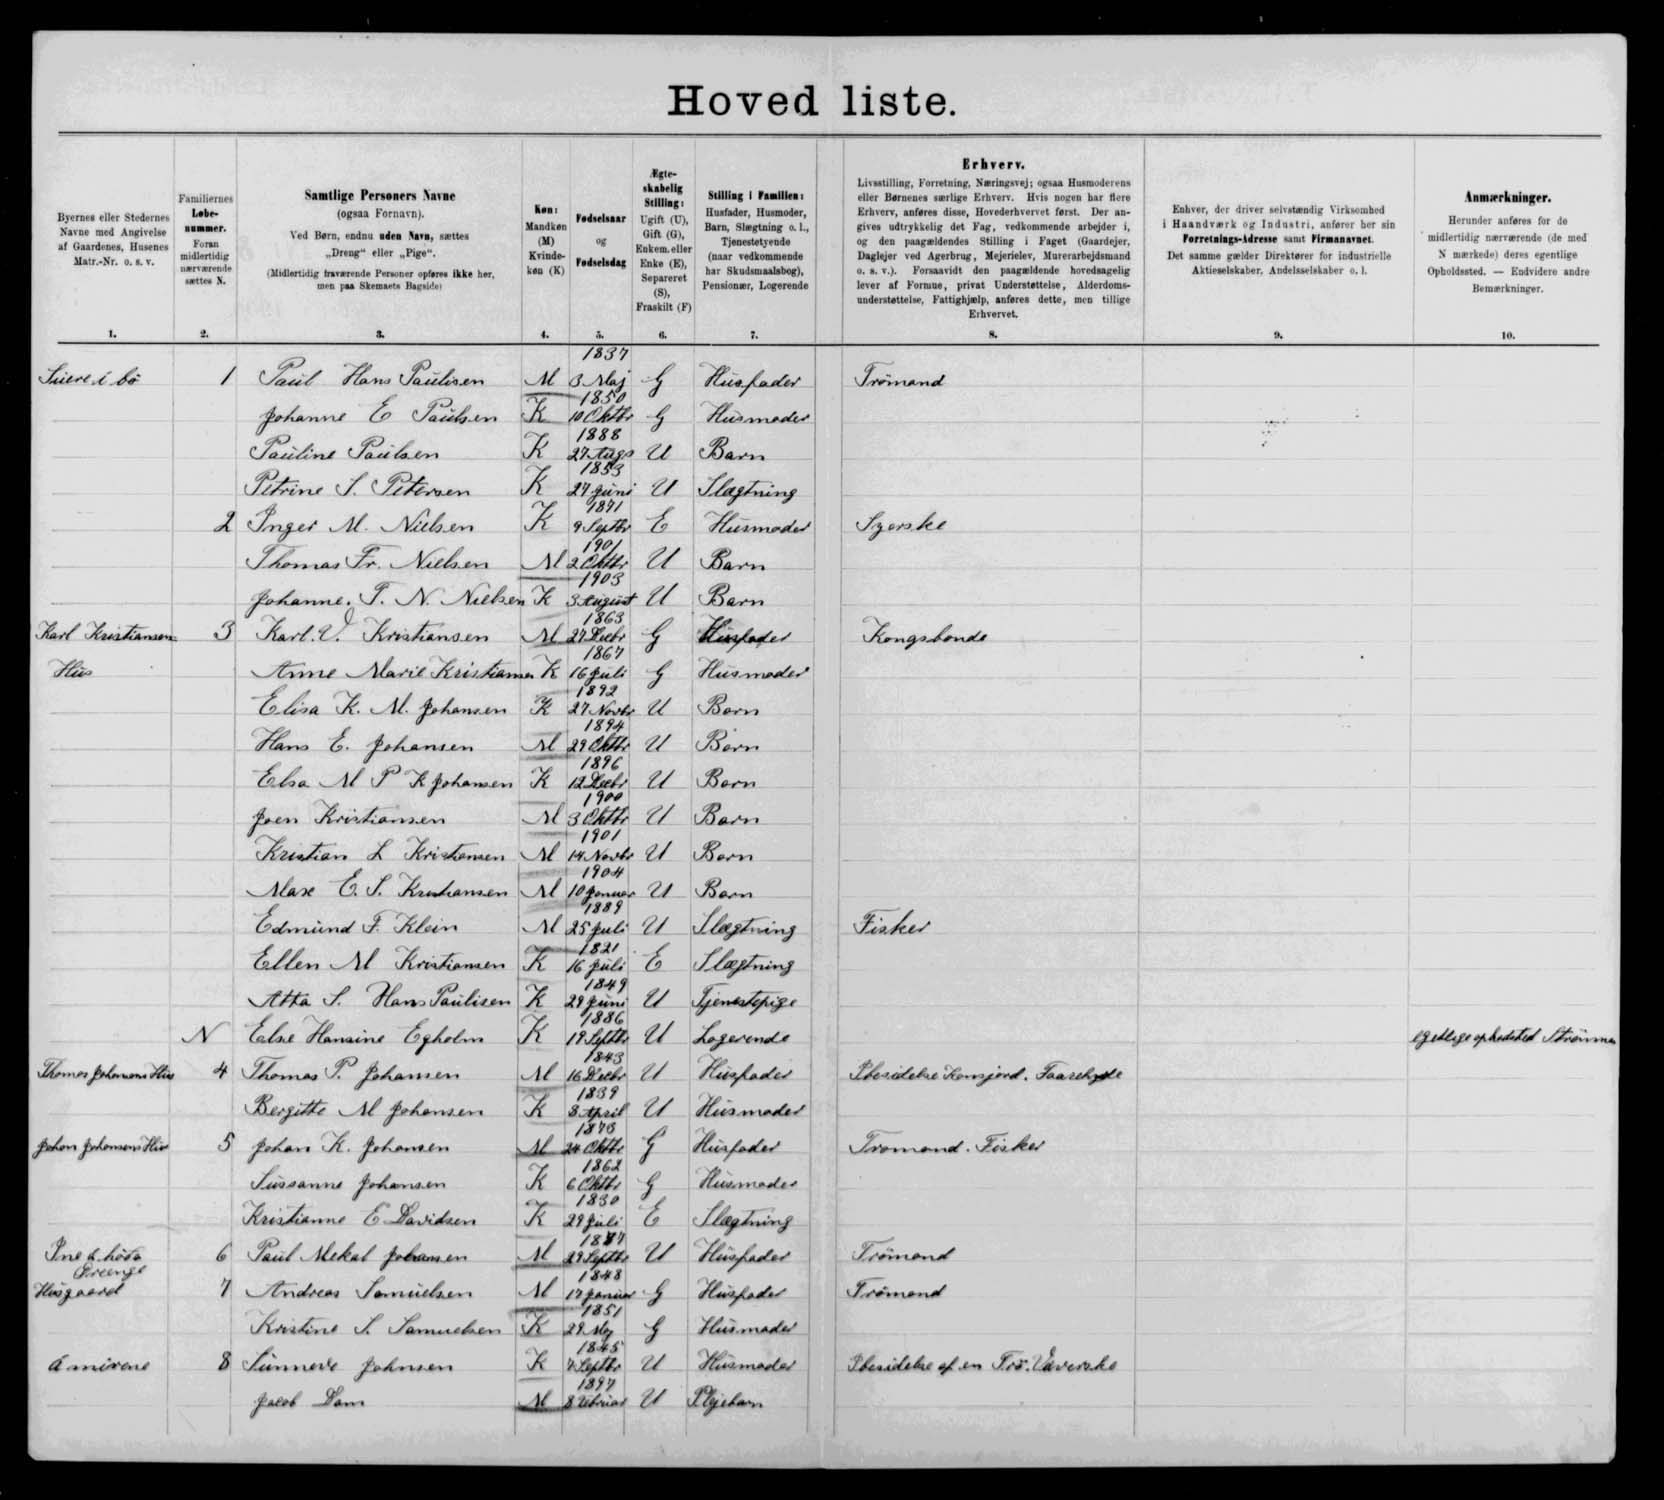 Hoved liste.
Byernes eller Stedernes
Navne med Angivelse
af Gaardenes, Husenes
Matr.-Nr. o. s. v.
1.
Familiernes
Løbe-
nummer.
Foran
midlertidig
nærværende
sættes N.
2.
Samtlige Personers Navne
(ogsaa Fornavn).
Ved Børn, endnu uden Navn, sættes
„Dreng“ eller „Pige“.
(Midlertidig fraværende Personer opføres ikke her,
men paa Skemaets Bagside)
3.
Køn:
Mandkøn
(M)
Kvinde-
køn (K)
4.
Fødselsaar
og
Fødselsdag
5.
Ægte-
skabelig
Stilling:
Ugift (U),
Gift (G),
Enkem. eller
Enke (E),
Separeret
(S),
Fraskilt (F)
6.
Stilling i Familien:
Husfader, Husmoder,
Barn, Slægtning o. l.,
Tjenestetyende
(naar vedkommende
har Skudsmaalsbog),
Pensionær, Logerende
7.
Erhverv.
Livsstilling, Forretning, Næringsvej; ogsaa Husmoderens
eller Børnenes særlige Erhverv. Hvis nogen har flere
Erhverv, anføres disse, Hovederhvervet først. Der an-
gives udtrykkelig det Fag, vedkommende arbejder i,
og den paagældendes Stilling i Faget (Gaardejer,
Daglejer ved Agerbrug, Mejerielev, Murerarbejdsmand
o. s. v.). Forsaavidt den paagældende hovedsagelig
lever af Formue, privat Understøttelse, Alderdoms-
understøttelse, Fattighjælp, anføres dette, men tillige
Erhvervet.
8.
Enhver, der driver selvstændig Virksomhed
i Haandværk og Industri, anfører her sin
Forretnings-Adresse samt Firmanavnet.
Det samme gælder Direktører for industrielle
Aktieselskaber, Andelsselskaber o. l.
9.
Anmærkninger.
Herunder anføres for de
midlertidig nærværende (de med
N mærkede) deres egentlige
Opholdssted. — Endvidere andre
Bemærkninger.
10.
1 Paul Hans Paulisen M 1837 3 Maj G Husfader Trömand
Johanne E Paulsen K 1850 10 Oktbr G Husmoder
Pauline Paulsen K 1888 27 Augs U Barn
Petrine S. Petersen K 1853 27 Juni U Slægtning
2 Inger M. Nielsen K 1871 9 Septbr E Husmoder Syerske
Thomas Fr. Nielsen M 1901 2 Oktbr U Barn
Johanne. T. N. Nielsen K 1903 3 August U Barn
Karl Kristiansens 3 Karl. V. Kristiansen M 1863 27 Decbr G Husfader Kongsbonde
Hus Anne Marie Kristiansen K 1867 16 Juli G Husmoder
Elisa K. M. Johansen K 1892 27 Novbr U Barn
Hans E. Johansen M 1894 29 Oktbr U Barn
Elsa M P K Johansen K 1896 12 Decbr U Barn
Joen Kristiansen M 1900 3 Oktbr U Barn
Kristian L Kristiansen M 1901 14 Novbr U Barn
Max E. S. Kristiansen M 1904 10 Januar U Barn
Edmund F. Klein M 1889 25 Juli U Slægtning Fisker
Ellen M Kristiansen K 1821 16 Juli E Slægtning
Atta S. Hans Paulisen K 1849 29 Juni U Tjenestepige
N Else Hansine Egholm K 1886 19 Septbr U Logerende
Thomas Johansens Hus 4 Thomas P. Johansen M 1843 16 Decbr U Husfader
Bergitte M Johansen K 1839 8 April U Husmoder
Johan Johansens Hus 5 Johan K. Johansen M 1873 24 Oktbr G Husfader Tromand. Fisker
Sussanne Johansen K 1862 6 Oktbr G Husmoder
Kristianne E Davidsen K 1830 29 Juli E Slægtning
6 Paul Mekal Johansen M 29 Septbr U Husfader Trömand
Husgaard 7 Andreas Samuelsen M 1848 17 Januar G Husfader Trömand
Kristine S. Samuelsen K 1851 29 Maj G Husmoder
8 Sunneve Johnsen K 1845 7 Septbr U Husmoder Ibesidelse af en Trö. Væverske
Jacob Dam M 1897 8 Februar U Plejebarn